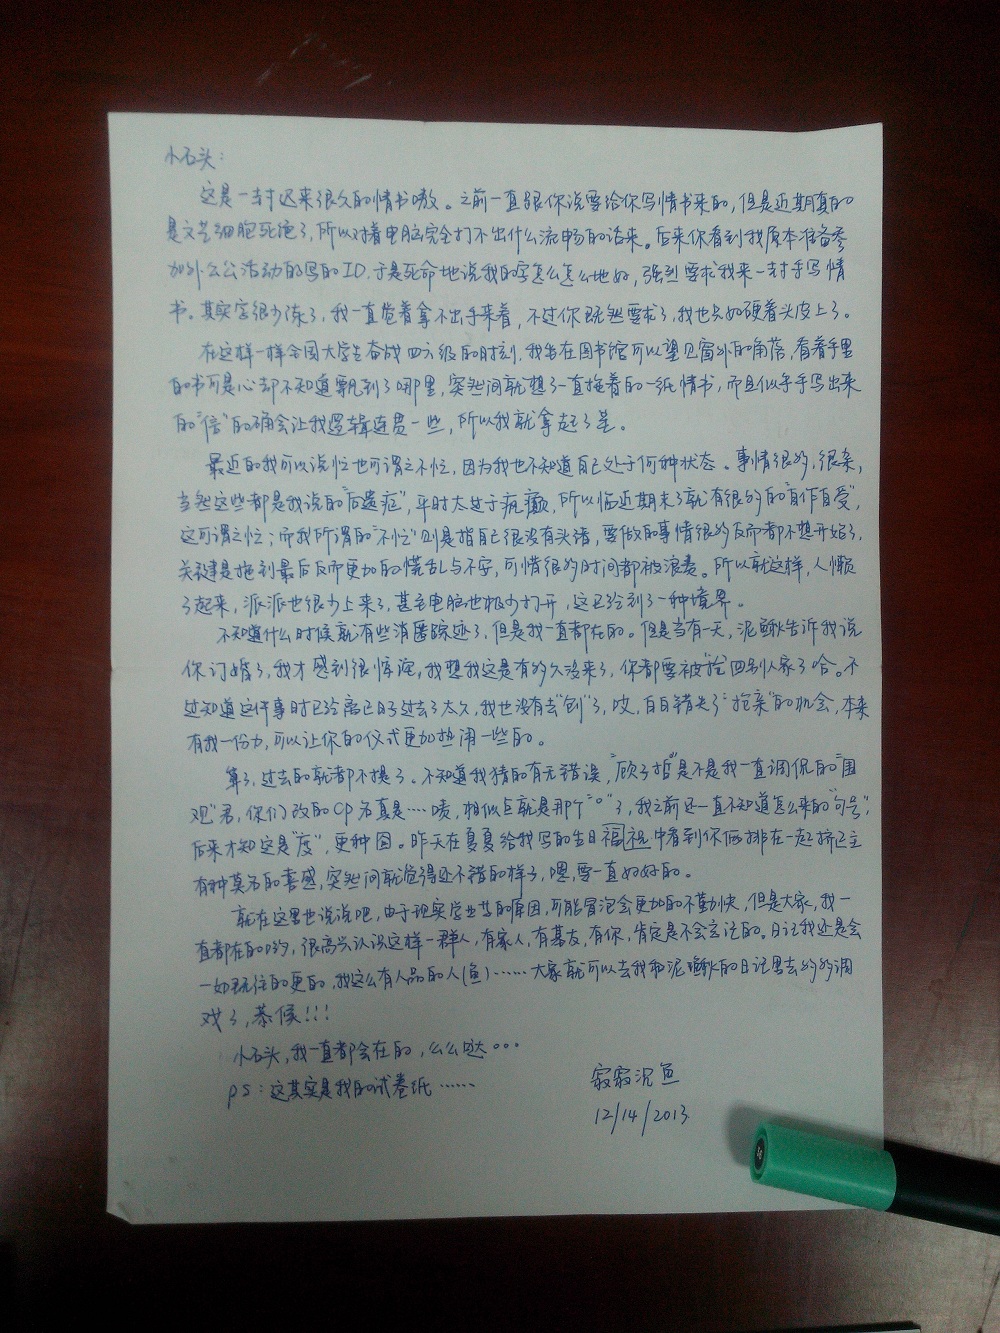 小石头：
这是一封迟来很久的情书嗷。之前一直跟你说要给你写情书来的，但是近期真的
是文艺细胞死绝了，所以对着电脑完全打不出什么流畅的话来。后来你看到我原本准备参
加外公公活动的写的ID，于是死命地说我的字怎么怎么地好，强烈要求我来一封手写情
书。其实字很少练了，我一直觉着拿不出手来着，不过你既然要求了，我也只好硬着头皮上了。
在这样一样全国大学生奋战四六级的时刻，我坐在图书馆可以望见窗外的角落，看着手里
的书可是心却不知道飘到了哪里，突然间就想了一直拖着的一纸情书，而且似乎手写出来
的“信”的确会让我逻辑连贯一些，所以我就拿起了笔。
最近的我可以说忙也可谓之不忙，因为我也不知道自己处于何种状态。事情很多，很杂，
当然这些都是我说的“后遗症”，平时太过于疯癫，所以临近期末了就有很多的“自作自受”，
这可谓之忙；而我所谓的“不忙”则是指自己很没有头绪，要做的事情很多反而都不想开始了，
关键是拖到最后反而更加的慌乱与不安，可惜很多时间都被浪费。所以就这样，人懒
了起来，派派也很少上来了，甚至电脑也极少打开，这已经到了一种境界。
不知道什么时候就有些消匿踪迹了，但是我一直都在的。但是当有一天，泥鳅告诉我说
你订婚了，我才感到很惊诧，我想我这是有多久没来了，你都要被“抢”回别人家了哈。不
过知道这件事时已经离正日子过去了太久，我也没有去“刨”了，哎，白白错失了“抢亲”的机会，本来
有我一份力，可以让你的仪式更加热闹一些的。
算了，过去的就都不提了。不知道我猜的有无错误，“顾了哲”是不是我一直调侃的“围
观”君，你们改的CP名真是……啧，相似点就是那个“°”了，我之前还一直不知道怎么来的“句号”，
后来才知这是“度”，更种囧。昨天在夏夏给我写的生日福祝中看到你俩排在一起挤正主
有种莫名的喜感，突然间就觉得还不错的样子，嗯，要一直好好的。
就在这里也说说吧，由于现实学业等的原因，可能冒泡会更加的不勤快，但是大家，我一
直都在的哟，很高兴认识这样一群人，有家人，有基友，有你，肯定是不会忘记的。日记我还是会
一如既往的更的，我这么有人品的人(鱼)……大家就可以去我和泥鳅的日记里去多多调
戏了，恭候!!!
小石头，我一直都会在的，么么哒。。。
PS：这其实是我的试卷纸……
寂寂沉鱼
12/14/2013